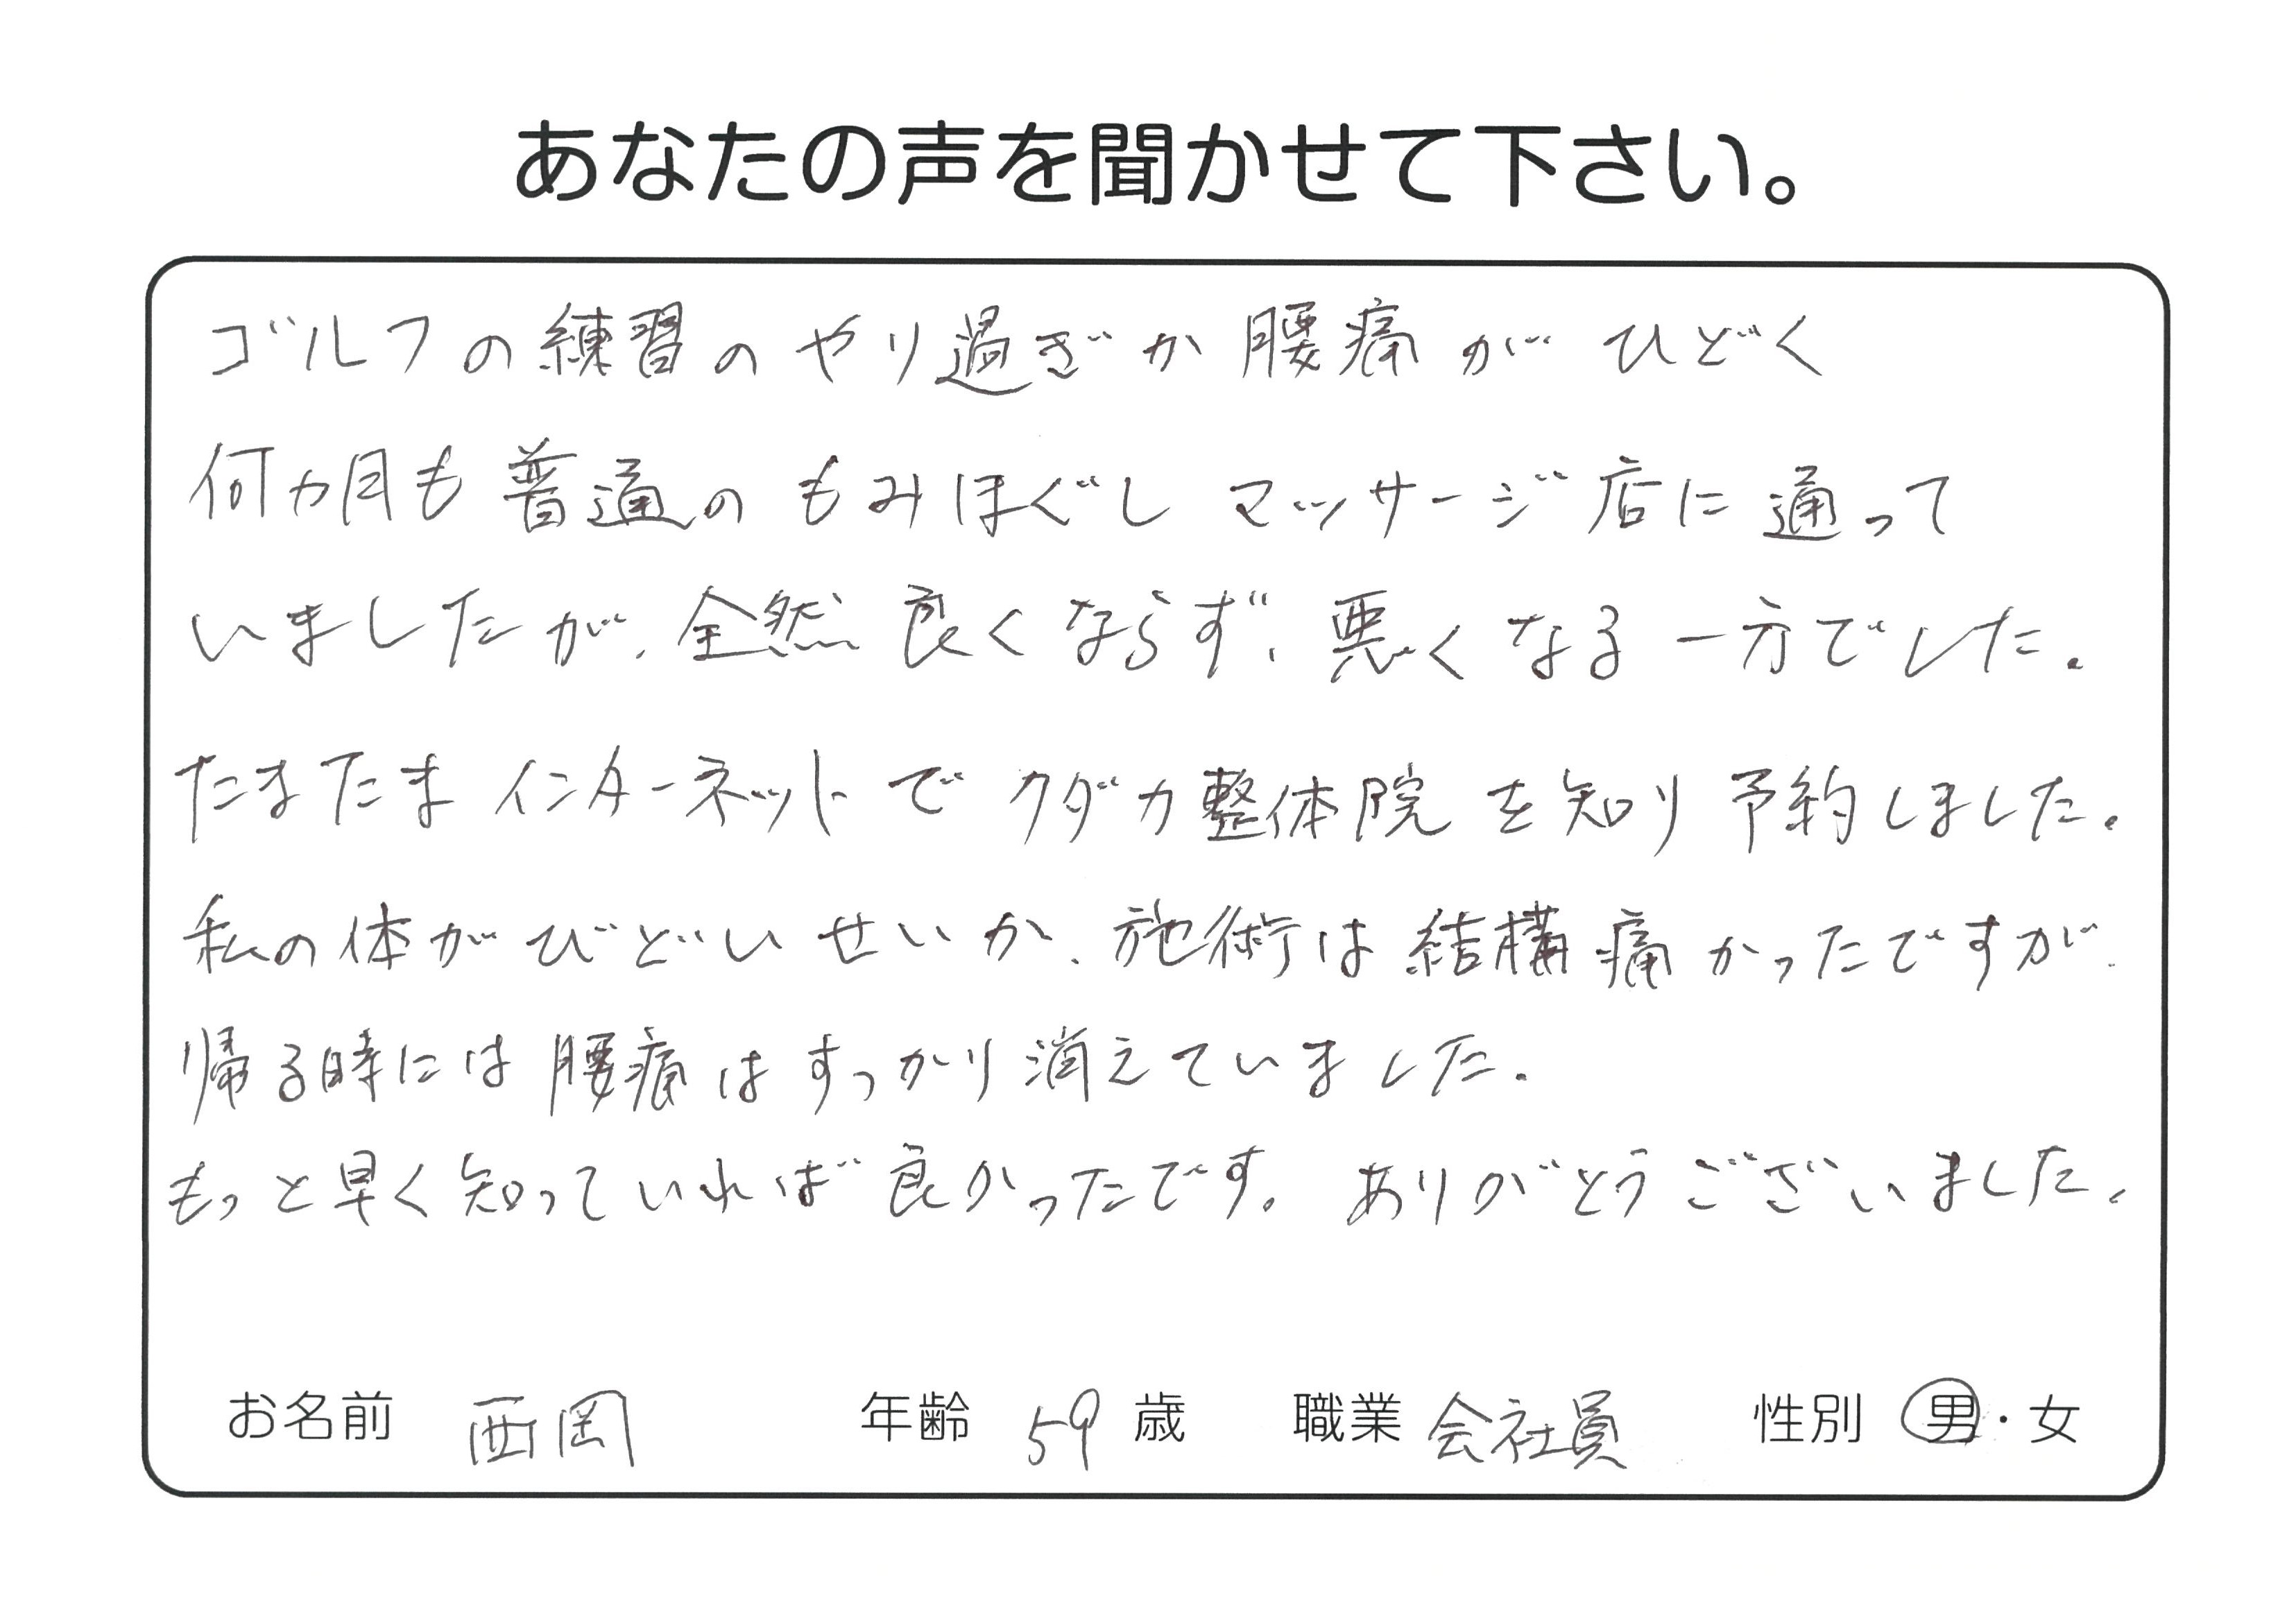 あなたの声を聞かせて下さい。
ゴルフの練習のやり過ぎか腰痛がひどく
何カ月も普通のもみほぐしマッサージ店に通って
いましたが、全然良くならず、悪くなる一方でした。
たまたまインターネットでクダカ整体院を知り予約しました。
私の体がひどいせいか、施術は結構痛かったですが、
帰る時には腰痛はすっかり消えていました。
もっと早く知っていれば良かったです。ありがとうございました。
お名前 西岡 年齢 59 歳 職業 会社員 性別 男・女